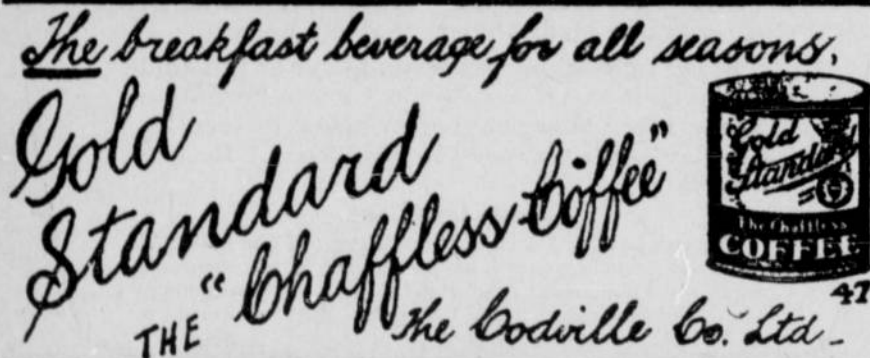 The breakfast beverage for all seasons.
Gold
Standard
THE "Chaffless Coffee"
The Codville Co. Ltd.
Gold
Standard
The Chaffless
COFFEE
47